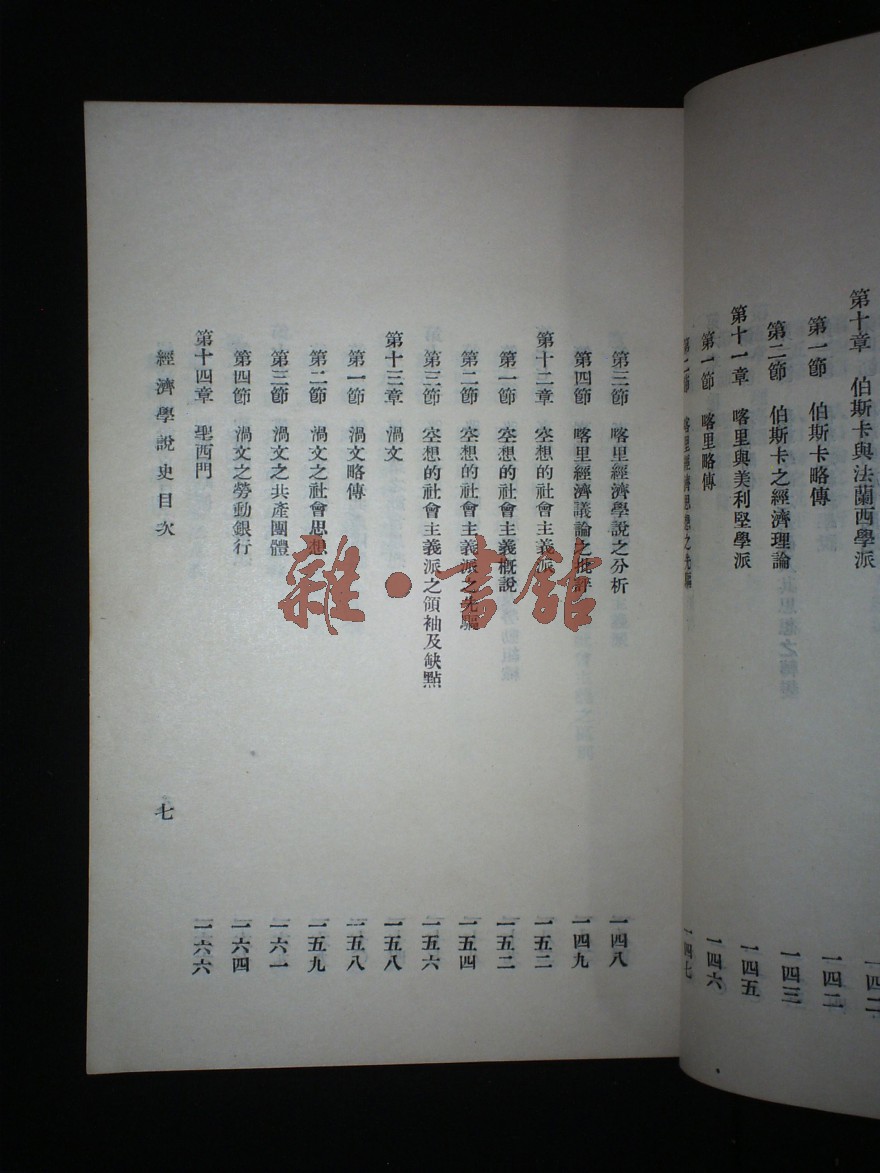 第十章　伯斯卡與法蘭西學派　一四二
第一節　伯斯卡略傳　一四二
第二節　伯斯卡之經濟理論　一四三
第十一章　喀里與美利堅學派　一四五
第一節　喀里略傳　一四六
第二節　喀里經濟思想之先驅　一四七
第三節　喀里經濟學說之分析　一四八
第四節　喀里經濟議論之批評　一四九
第十二章　空想的社會主義派　一五二
第一節　空想的社會主義概說　一五二
第二節　空想的社會主義派之先驅　一五四
第三節　空想的社會主義派之領袖及缺點　一五六
第十三章　渦文　一五八
第一節　渦文略傳　一五八
第二節　渦文之社會思想　一五九
第三節　渦文之共產團體　一六一
第四節　渦文之勞動銀行　一六四
第十四章　聖西門　一六六
經濟學說史目次　七
雜·書館